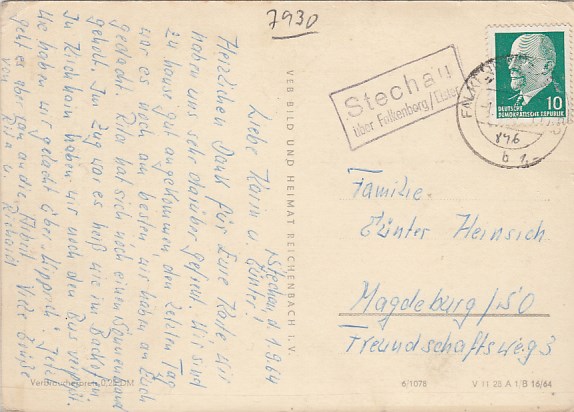 7930
Stechau
über Falkenberg/Elster
DEUTSCHE
DEMOKRATISCHE REPUBLIK
10
b
Stechau, d. 1.9.64
Liebe Karin u. Günter!
Herzlichen Dank für Eure Karte wir
haben uns sehr darüber gefreut. Wir sind
zu haus gut angekommen, den letzten Tag
war es noch am besten wir haben an Euch
gedacht. Rita hat sich noch einen Sonnenbrand
geholt. Im Zug war es heiß wie im Backofen.
In haben wir noch den Bus verpaßt.
haben wir gedacht über Jetzt
geht es aber ran an die Arbeit. Viele Grüße
von Rita u. Richard
VEB BILD UND HEIMAT REICHENBACH I. V.
Familie
Günter Heinsich
Magdeburg/SO
Freundschaftsweg 3
Verbraucherpreis 0,25 DM
6/1078
V 11 28 A 1/B 16/64